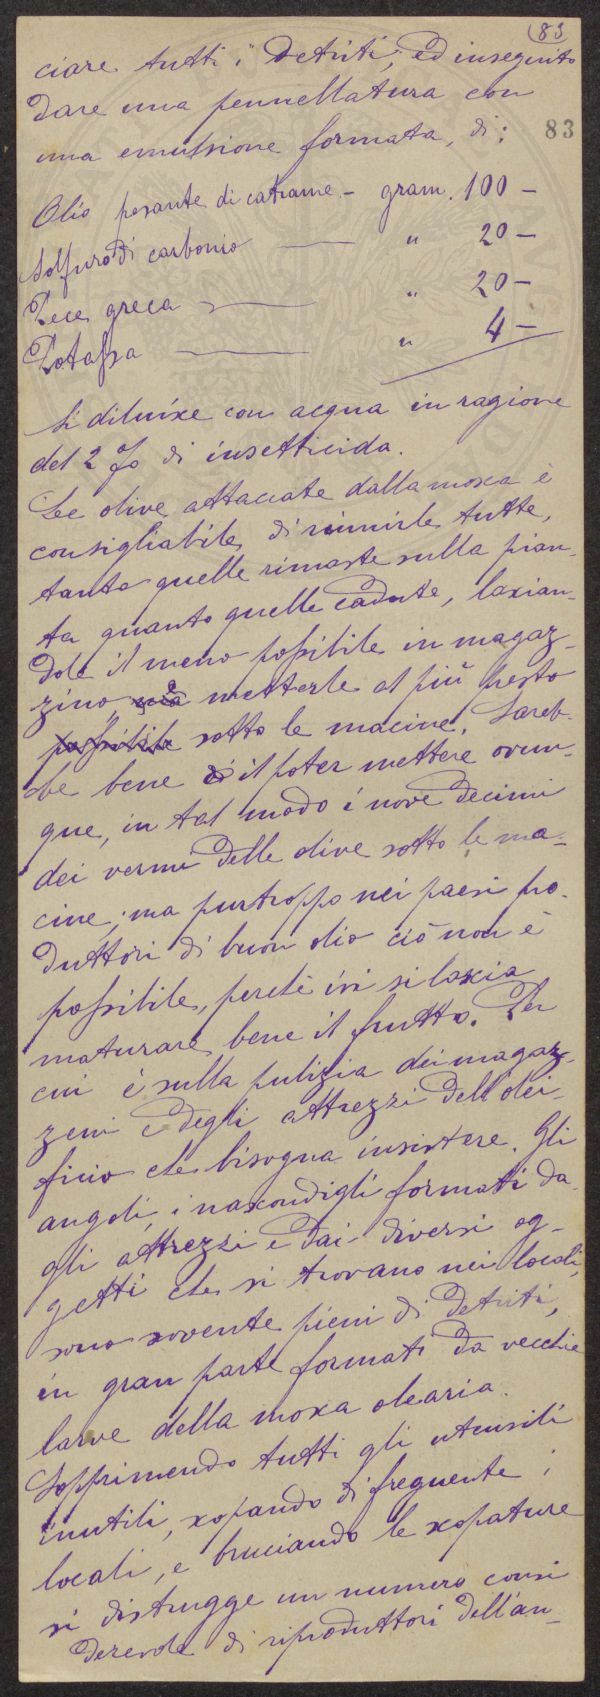 (83
ciare tutti i detriti, ed inseguito
dare una pennellatura con
una emulsione formata, di:
83
Olio pesante di catrame - gram. 100 -
Solfuro di carbonio — " 20 -
Pece greca — " 20 -
Potassa — " 4 -
Si diluisce con acqua in ragione
del 2 % di insetticida.
Le olive attaccate dalla mosca è
consigliabile di riunirle tutte,
tanto quelle rimaste sulla pian-
ta quanto quelle cadute, lascian-
dole il meno possibile in magaz-
zino, e metterle al più presto
possibile sotto le macine. Sareb-
be bene il poter mettere ovun-
que, in tal modo i nove decimi
dei vermi delle olive sotto le ma-
cine; ma purtroppo nei paesi pro-
duttori di buon olio ciò non è
possibile, perchè ivi si lascia
maturare bene il frutto. Per
cui è sulla pulizia dei magaz-
zeni e degli attrezzi dell'olei-
ficio che bisogna insistere. Gli
angoli, i nascondigli formati da-
gli attrezzi e dai diversi og-
getti che si trovano nei locali,
sono sovente pieni di detriti,
in gran parte formati da vecchie
larve della mosca olearia.
Sopprimendo tutti gli utensili
inutili, scopando di frequente i
locali, e bruciando le scopature
si distrugge un numero consi
derevole di riproduttori dell'an-